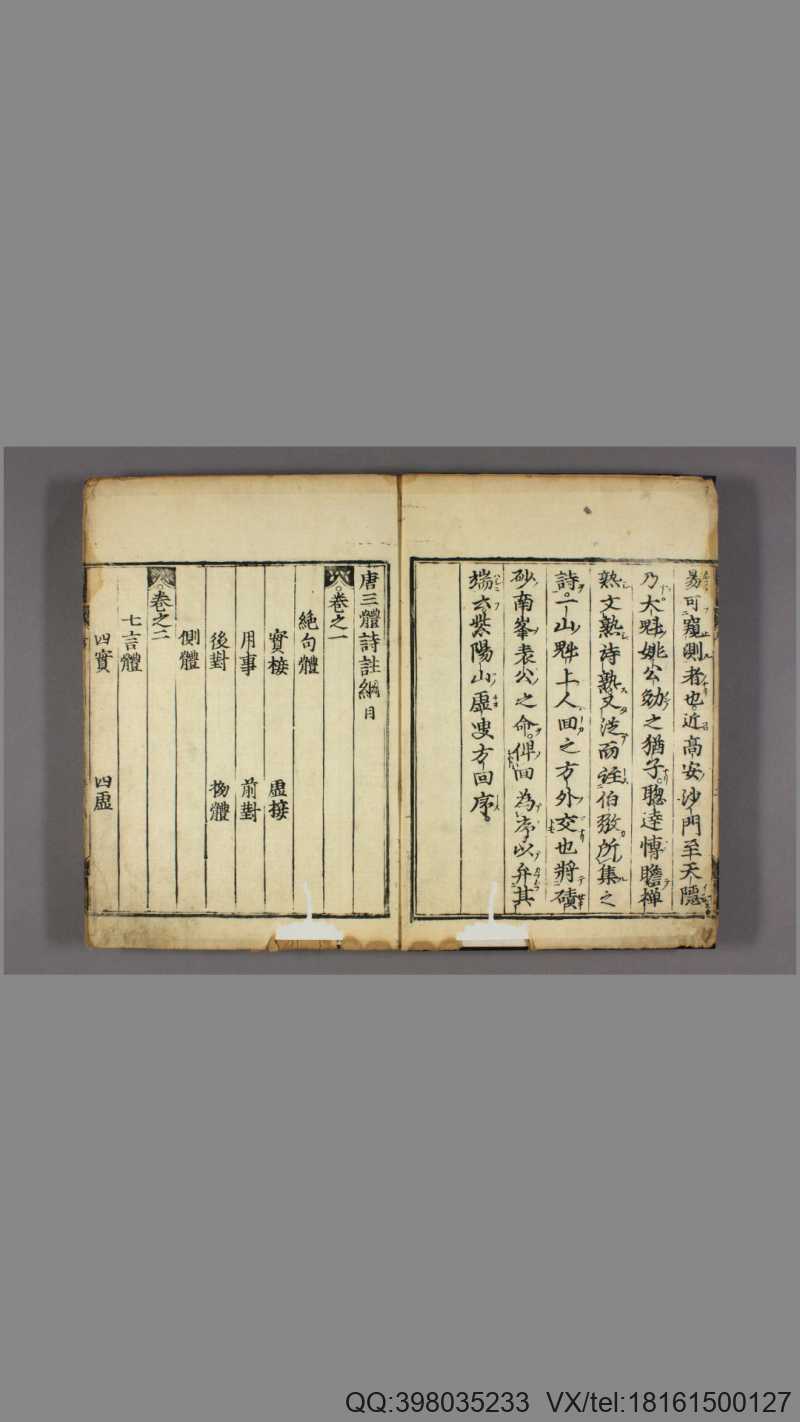 易可窺測者也近高安沙門至天隱
乃大魁姚公勉之猶子聰達博贍禅
熟文熟詩熟又從而註伯弜所集之
詩一山魁上人回之方外交也將磧
砂南峯袁公之命俾回為序以弁其
端云紫陽山虛叟方回序
唐三體詩註綱目
卷之一
絶句體
實接 虛接
用事 前對
後對 拗體
側體
卷之二
七言體
四實 四虛
QQ:398035233 VX/tel:18161500127